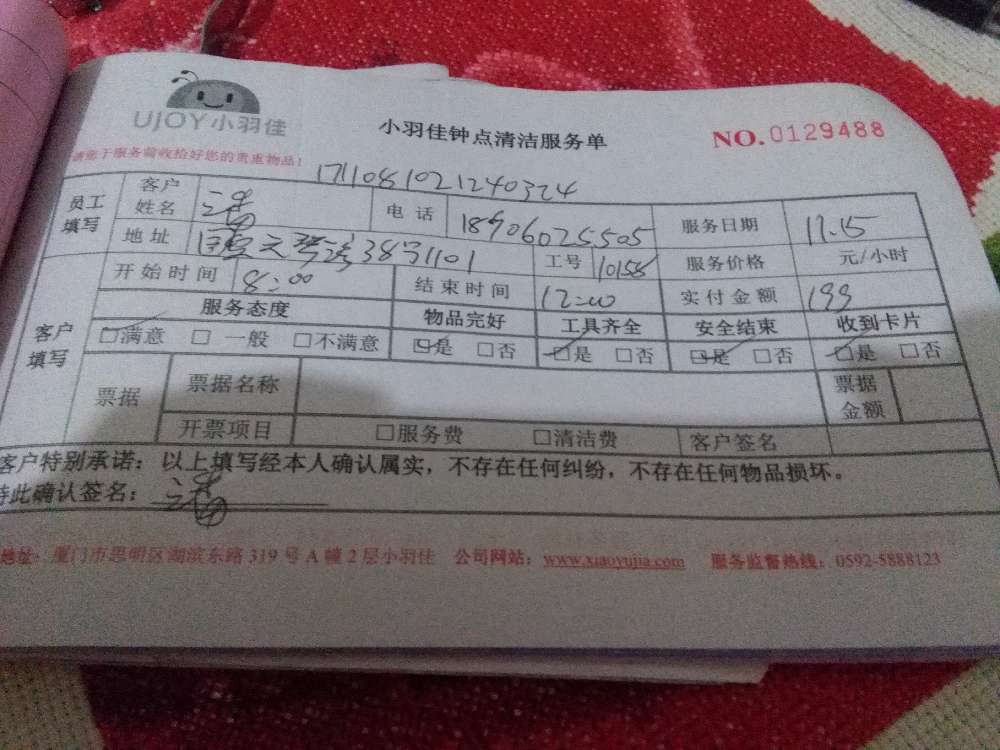 UJOY小羽佳
小羽佳钟点清洁服务单
NO.0129488
请您于服务前收拾好您的贵重物品!
1711081021240324
员工填写 客户姓名 电话 18906025505 服务日期 11.15
地址 38号1101 工号 10158 服务价格 元/小时
客户填写 开始时间 8:00 结束时间 12:00 实付金额 199
服务态度 物品完好 工具齐全 安全结束 收到卡片
□满意 □一般 □不满意 □是 □否 □是 □否 □是 □否 □是 □否
票据 票据名称 票据金额
开票项目 □服务费 □清洁费 客户签名
客户特别承诺:以上填写经本人确认属实,不存在任何纠纷,不存在任何物品损坏。
特此确认签名:
地址:厦门市思明区湖滨东路319号A幢2层小羽佳 公司网站:www.xiaoyujia.com 服务监督热线:0592-5888123